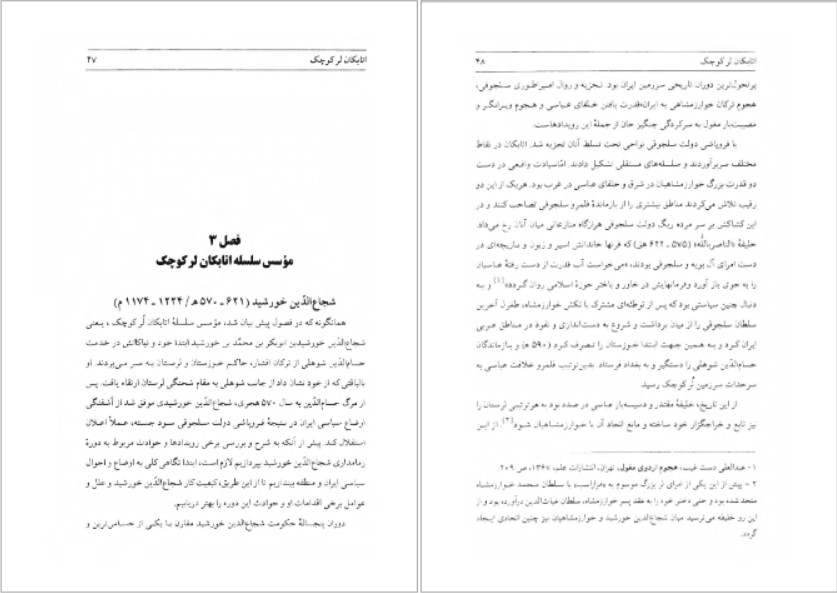 اتابکان لر کوچک ۴۷
فصل ۳
مؤسس سلسله اتابکان لر کوچک
شجاع‌الدّین خورشید (۶۲۱ ـ ۵۷۰ ه‍ / ۱۲۲۴ ـ ۱۱۷۴ م)
همانگونه که در فصول پیش بیان شد، مؤسس سلسلهٔ اتابکان لُر کوچک ، یعنی
شجاع‌الدّین خورشیدبن ابوبکر بن محمّد بن خورشید ابتدا خود و نیاکانش در خدمت
حسام‌الدّین شوهلی از ترکان افشار، حاکـم خـوزستان و لرستـان بـه سـر مـی‌بردند. او
بالیاقتی که از خود نشان داد از جانب شوهلی به مقام شحنگی لرستان ارتقاء یافت. پس
از مرگ حسام‌الدّین به سال ۵۷۰ هجری، شجاع‌الدّین خورشیدی موفق شد از آشفتگی
اوضاع سیاسی ایران در نتیجهٔ فروپاشی دولت سلجوقی سـود جسته، عملاً اعلان
استقلال کند. پیش از آنکه به شرح و بررسی برخی رویدادها و حوادث مربوط به دورهٔ
زمامداری شجاع‌الدّین خورشید بپردازیم لازم است، ابتدا نگاهی کلی به اوضاع و احوال
سیاسی ایران و منطقه بیندازیم تا از این طریق، کیفیت کار شجاع‌الدّین خورشید و علل و
عوامل برخی اقدامات او و حوادث این دوره را بهتر دریابیم.
دوران پنجـالهٔ حکومت شجاع‌الدین خورشید مقارن بـا یکـی از حساس‌ترین و
اتابکان لر کوچک ۴۸
پرتحول‌ترین دوران تاریخی سرزمین ایران بود. تـجزیه و زوال امپراطـوری سـلجوقی،
هجوم ترکان خوارزمشاهی به ایران،قدرت یافتن خـلفای عبـاسی و هـجوم ویـرانگـر و
مصیبت‌بار مغول به سرکردگی چنگیز خان از جملهٔ این رویدادهاست.
با فروپاشی دولت سلجوقی نواحی تحت تسلط آنان تجزیه شد. اتابکان در نقاط
مختلف سربرآوردند و سلسله‌های مستقلی تشکیل دادند. امّاسیادت واقعی در دست
دو قدرت بزرگ خوارزمشاهیان در شرق و خلفای عباسی در غرب بود. هریک از این دو
رقیب تلاش می‌کردند مناطق بیشتری را از بازماندهٔ قلمرو سلجوقی تصاحب کنند و در
این کشاکش بر سر مرده ریگ دولت سلجوقی هرازگاه منازعاتی میان آنان رخ می‌داد.
خلیفهٔ «الناصرباللّٰه» (۵۷۵ ـ ۶۲۲ هق) که قرنها خاندانش اسیر و زبون و بازیچه‌ای در
دست امرای آل بویه و سلجوقی بودند، «می‌خواست آب قدرت از دست رفتهٔ عباسیان
را به جوی باز آورد وفرمانهایش در خاور و باختر حوزهٔ اسلامی روان گردد»(۱) و به
دنبال چنین سیاستی بود که پس از توطئه‌ای مشترک با تکش خوارزمشاه، طغرل آخرین
سلطان سلجوقی را از میان برداشت و شروع به دست‌اندازی و نفوذ در مـناطق غـربی
ایران کـرد و بـه هـمین جـهت ابتدا خـوزستان را تـصرف کـرد (۵۹۰ ه‍) و بـازماندگان
حسام‌الدّین شوهلی را دستگیر و به بغداد فرستاد. بدین‌ترتیب قلمرو خلافت عباسی به
سرحدات سرزمین لُر کوچک رسید.
از این تاریخ، خلیفهٔ مقتدر و دسیسه‌باز عباسی در صدد بود به هرترتیبی لرستان را
نیز تابع و خراجگزار خود ساخته و مانع اتحاد آن با خـوارزمشـاهیان شـود(۲). از ایـن
۱ - عبدالعلی دست غیب، هجوم اردوی مغول، تهران، انتشارات علم، ۱۳۶۷، ص ۲۰۹.
۲ - پیش از این یکی از امرای لر بزرگ موسوم به «هزاراسب» با سلطان محمد خوارزمشاه
متحد شده بود و حتی دختر خود را به عقد پسر خوارزمشاه، سلطان غیاث‌الدین درآورده بود و از
این رو خلیفه می‌ترسید میان شجاع‌الدین خورشید و خوارزمشاهیان نیز چنین اتحادی ایجاد
گردد.